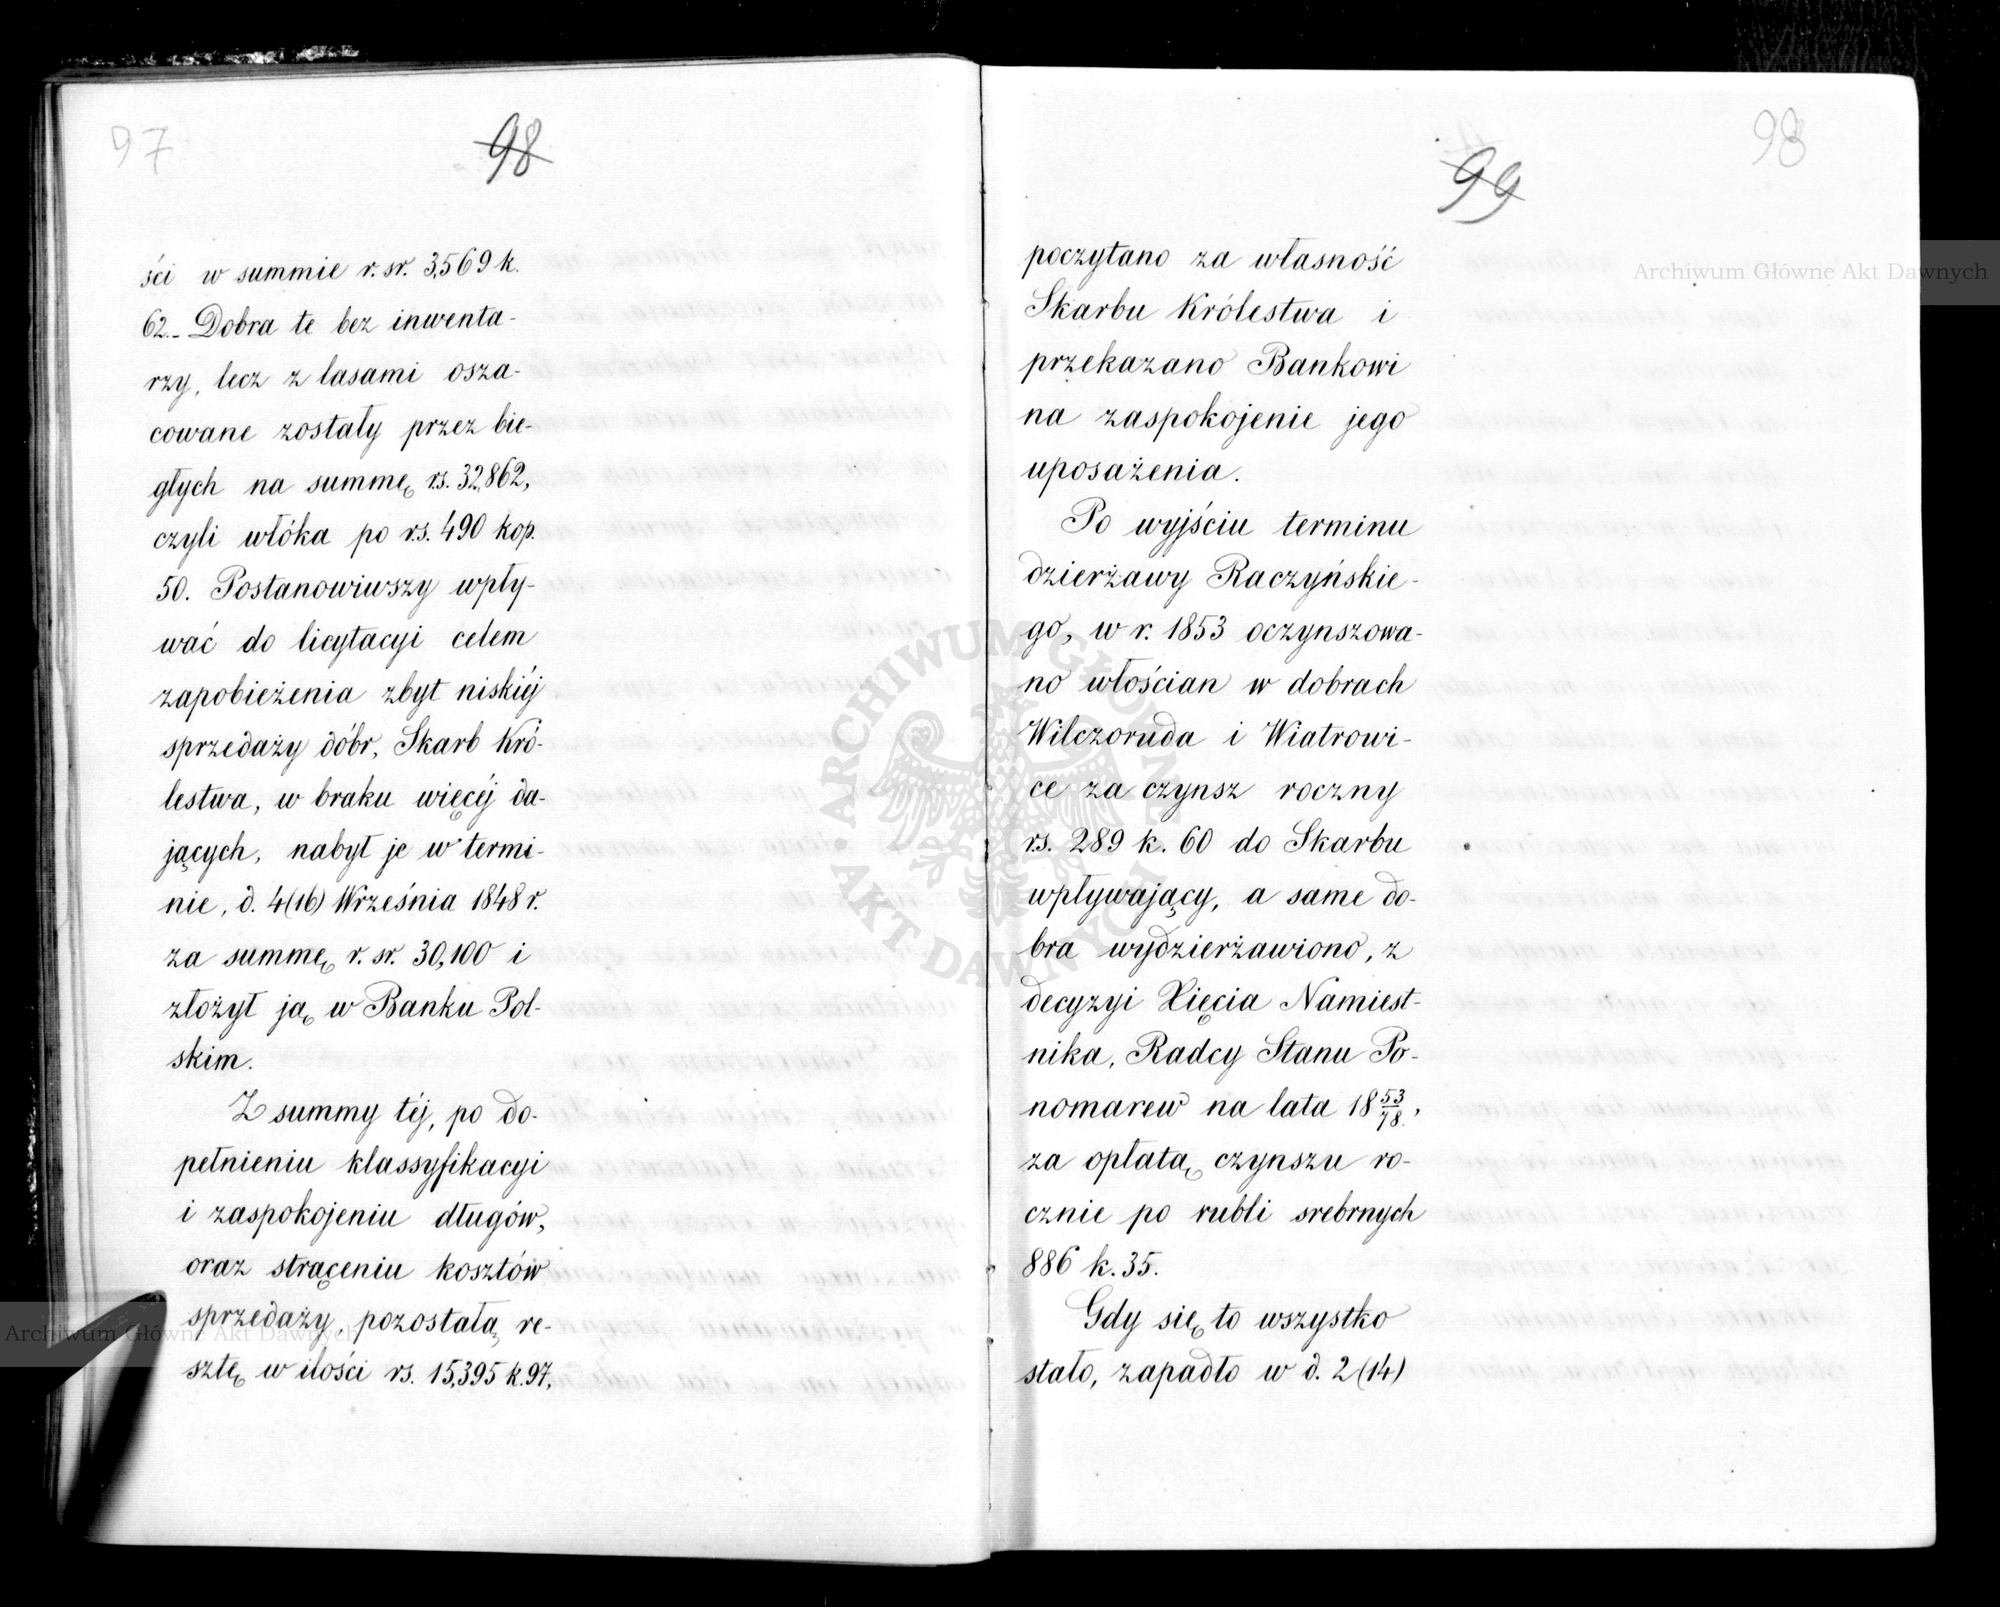 97
98
ści w summie r. sr. 3,569 k.
62.- Dobra te bez inwenta-
rzy, lecz z lasami osza-
cowane zostały przez bie-
głych na summę rs. 32,862,
czyli włóka po rs. 490 kop.
50. Postanowiwszy wpły-
wać do licytacyi celem
zapobieżenia zbyt niskiéj
sprzedaży dóbr, Skarb Kró-
lestwa, w braku więcéj da-
jących, nabył je w termi-
nie, d. 4(16) Września 1848 r.
za summę r. sr. 30,100 i
złożył ją w Banku Pol-
skim.
Z summy téj, po do-
pełnieniu klassyfikacyi
i zaspokojeniu długów,
oraz strąceniu kosztów
sprzedaży, pozostałą re-
sztę w ilości rs. 15,395 k. 97,
98
99
poczytano za własność
Skarbu Królestwa i
przekazano Bankowi
na zaspokojenie jego
uposażenia.
Po wyjściu terminu
dzierżawy Raczyńskie-
go, w r. 1853 oczynszowa-
no włościan w dobrach
Wilczoruda i Wiatrowi-
ce za czynsz roczny
rs. 289 k. 60 do Skarbu
wpływający, a same do-
bra wydzierżawiono, z
decyzyi Xięcia Namiest-
nika, Radcy Stanu Po-
nomarew na lata 18 53/78,
za opłatą czynszu ro-
cznie po rubli srebrnych
886 k. 35.
Gdy się to wszystko
stało, zapadło w d. 2 (14)
Archiwum Główne Akt Dawnych
ARCHIWUM GŁÓWNE AKT DAWNYCH
Archiwum Główne Akt Dawnych